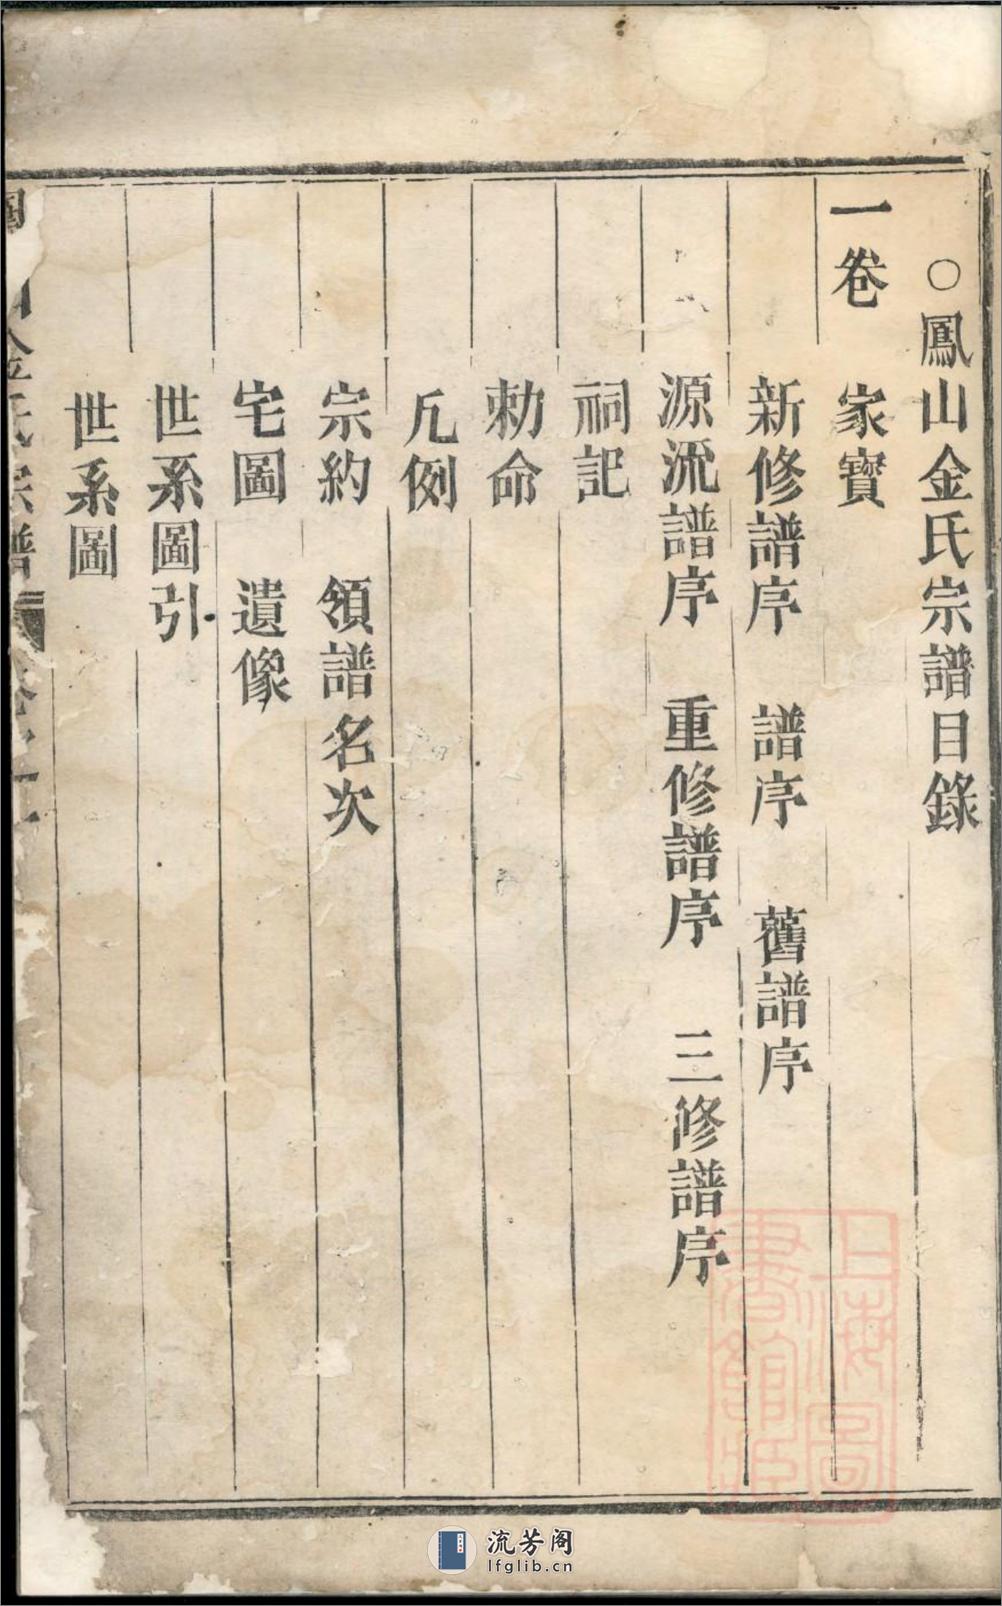 ○鳳山金氏宗譜目錄
一卷 家寶
新修譜序 譜序 舊譜序
源流譜序 重修譜序 三修譜序
祠記
勅命
凡例
宗約 領譜名次
宅圖 遺像
世系圖引
世系圖
山金氏宗譜 卷之一
上海圖書館藏
流芳阁
lfglib.cn